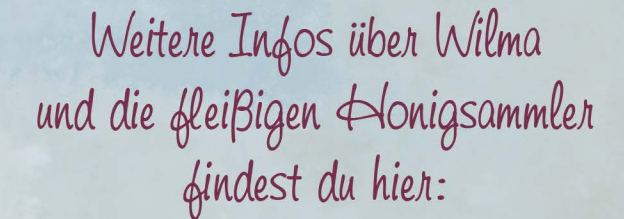 Weitere Infos über Wilma
und die fleißigen Honigsammler
findest du hier: